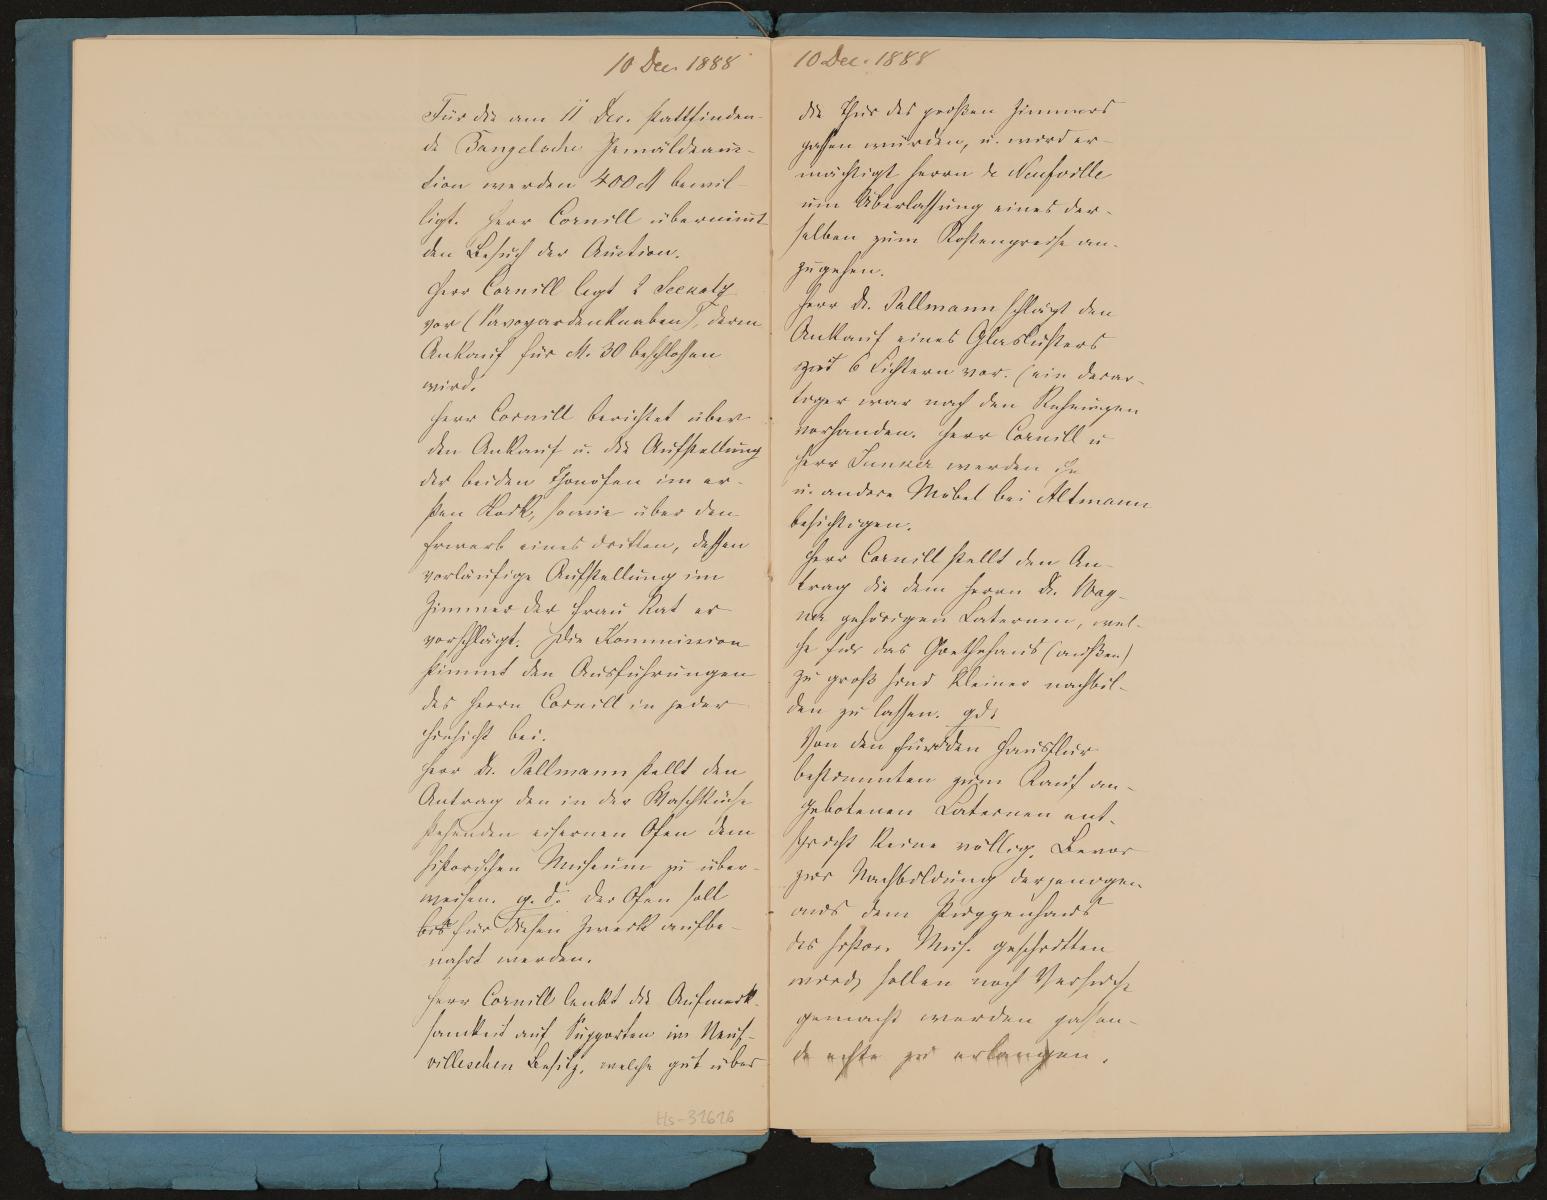 10 Dec. 1888
Für die am 11 Dec. stattfinden-
de Bangelsche Gemäldeauc-
tion werden 400 M bewil-
ligt. Herr Cornill übernimmt
den Besuch der Auction.
Herr Cornill legt 2 Seekatz
vor (Savoyardenknaben), deren
Ankauf für M. 30 beschlossen
wird.
Herr Cornill berichtet über
den Ankauf u. die Aufstellung
der beiden Thonöfen im er-
sten Stock, sowie über den
Erwerb eines dritten, dessen
vorläufige Aufstellung im
Zimmer der Frau Rat er
vorschlägt. Die Kommission
stimmt den Ausführungen
des Herrn Cornill in jeder
Hinsicht bei.
Herr Dr. Pallmann stellt den
Antrag den in der Waschküche
stehenden eisernen Ofen dem
historischen Museum zu über-
weisen. Der Ofen soll
bis für diesen Zweck aufbe-
wahrt werden.
Herr Cornill lenkt die Aufmerk-
samkeit auf Supporten im Neuf-
villeschen Besitz, welche gut über
Hs-31616
10 Dec. 1888
die Thür des großen Zimmers
passen würden, u. wird er-
mächtigt Herrn de Neufville
um Überlassung eines der-
selben zum Kostenpreise an-
zugehen.
Herr Dr. Pallmann schlägt den
Ankauf eines Glaslüsters
mit 6 Lichtern vor. (ein derar-
tiger war nach den Rechnungen
vorhanden. Herr Cornill u
Herr Junker werden ihn
u. andere Möbel bei Altmann
besichtigen.
Herr Cornill stellt den An-
trag die dem Herrn Dr. Wag-
ner gehörigen Laternen, wel-
che für das Goethehaus (außen)
zu groß sind kleiner nachbil-
den zu lassen.
Von den für den Hausflur
bestimmten zum Kauf an-
gebotenen Laternen ent-
spricht keine völlig. Bevor
zur Nachbildung derjenigen
aus dem
des histor. Mus. geschritten
wird, sollen noch Versuche
gemacht werden passen-
de echte zu erlangen.